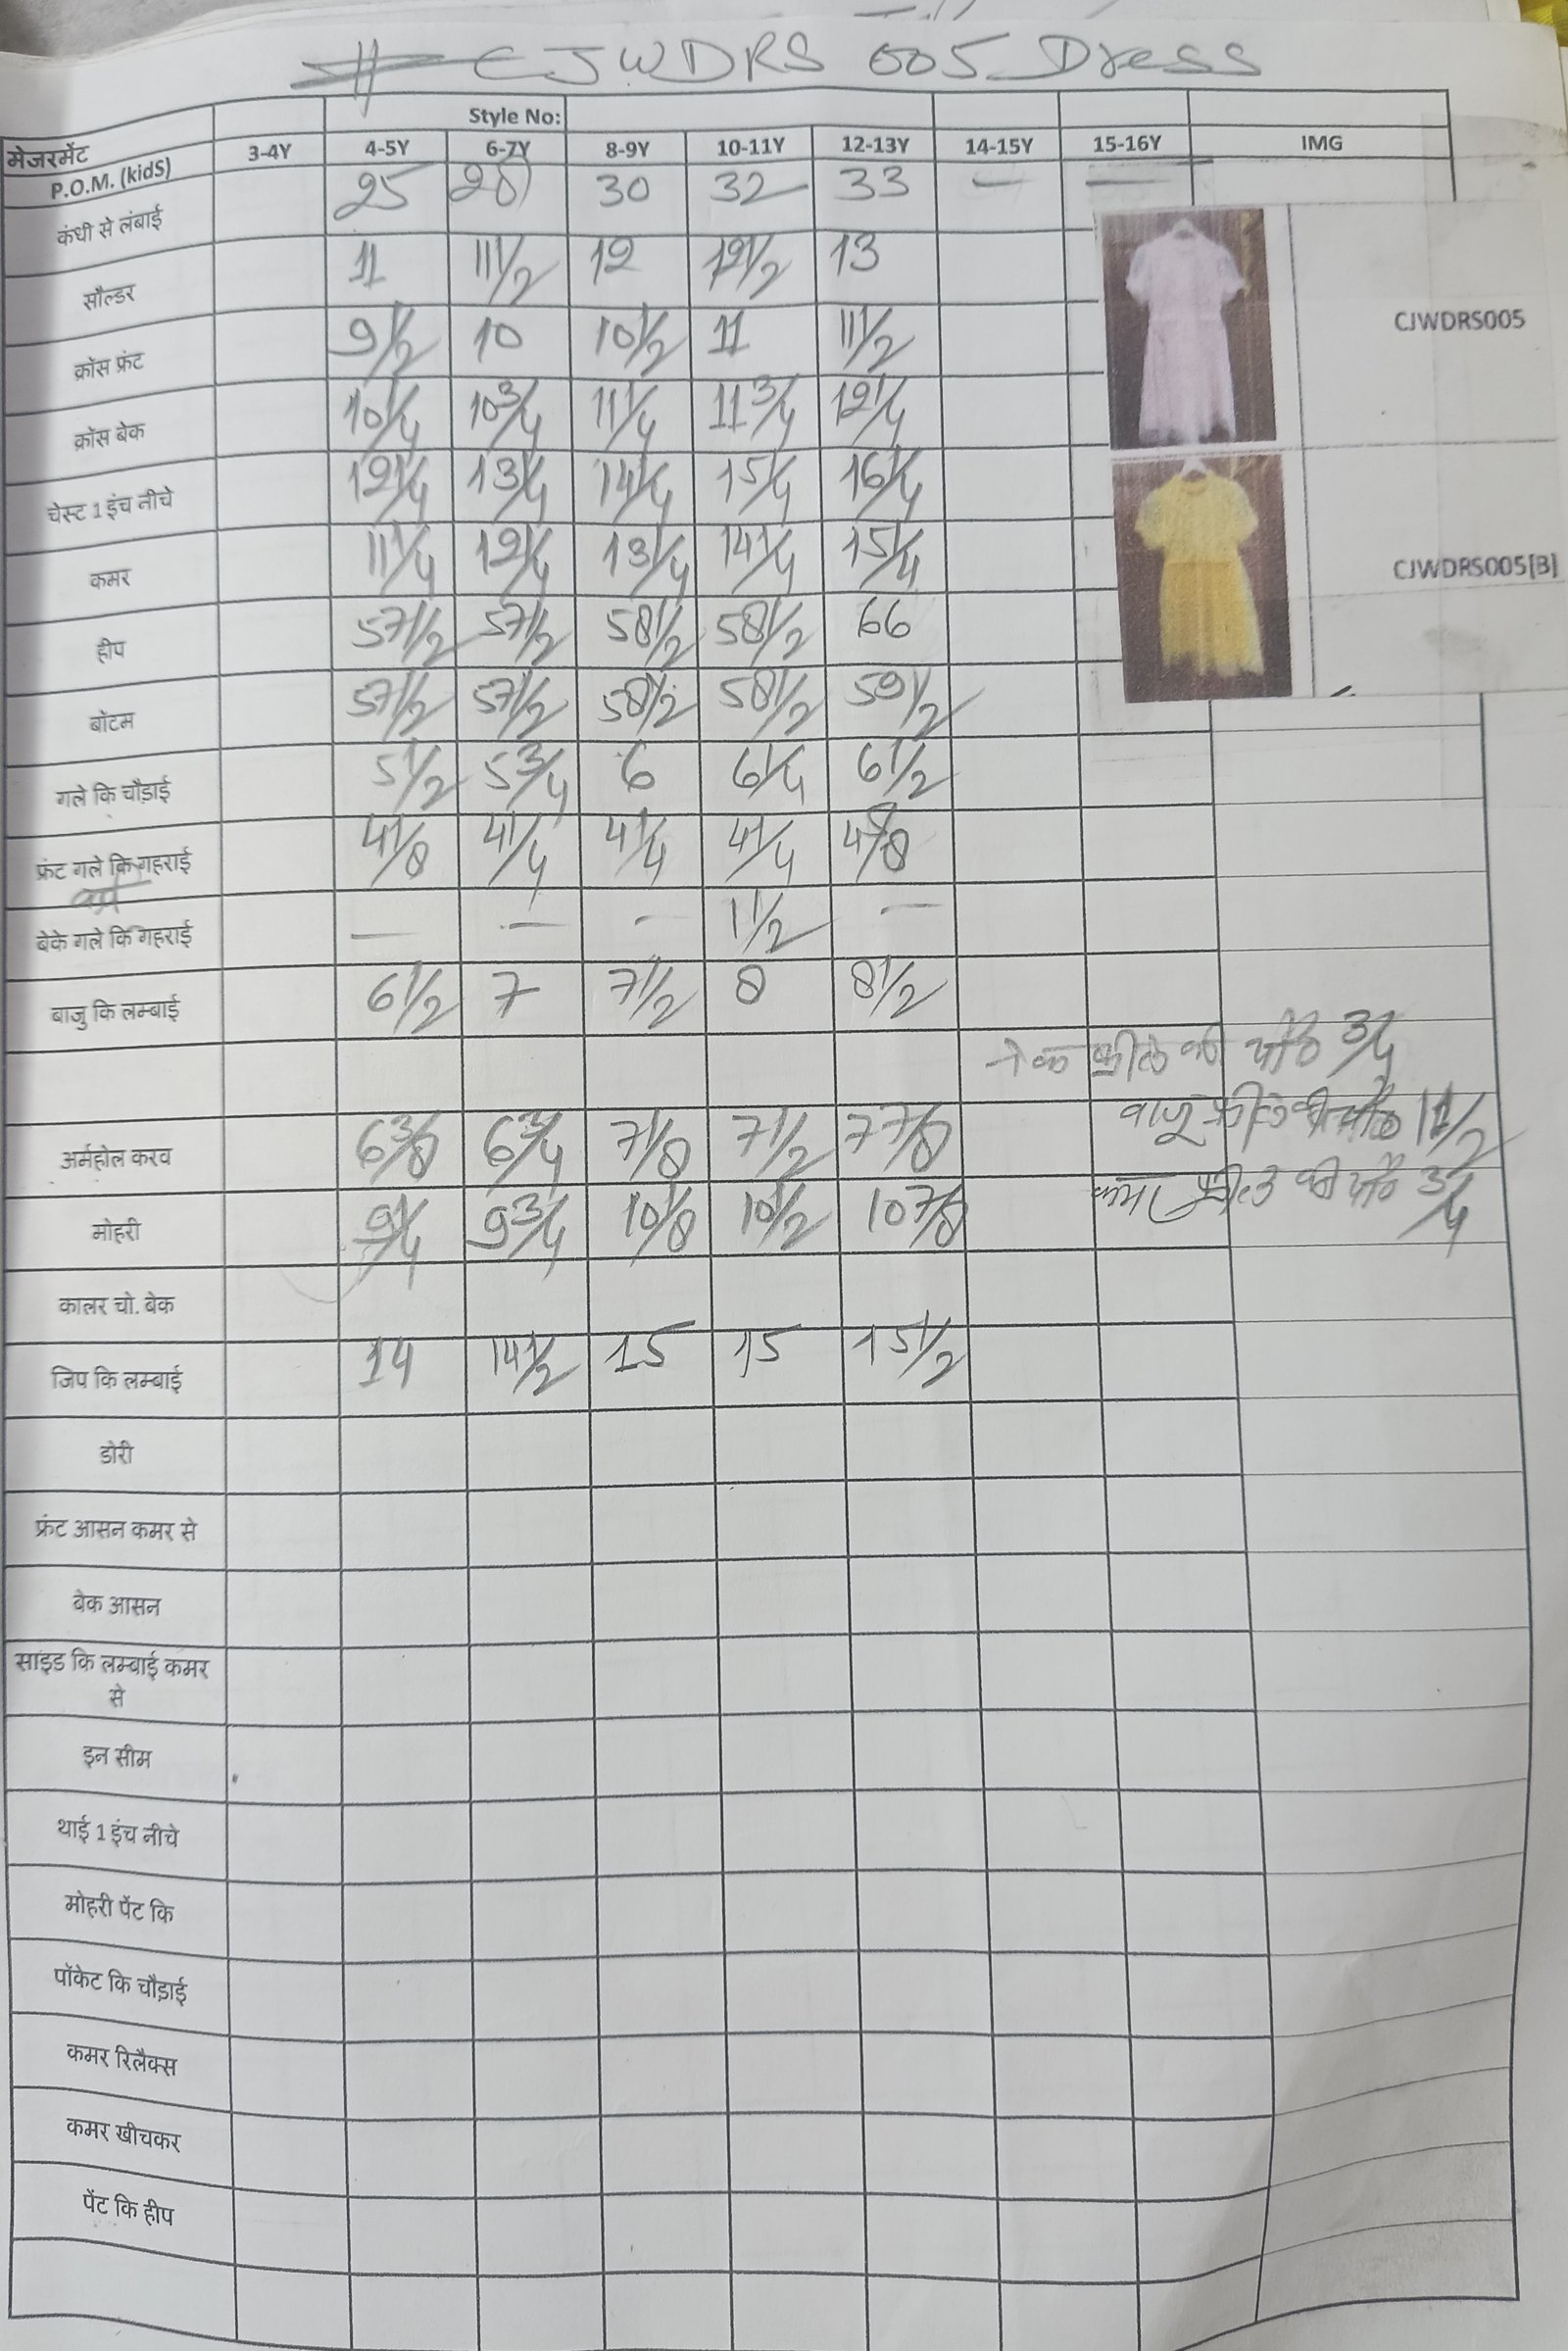 CJWDRS 005 Dress
Style No:
मेजरमेंट P.O.M. (kidS) 3-4Y 4-5Y 6-7Y 8-9Y 10-11Y 12-13Y 14-15Y 15-16Y IMG
कंधी से लंबाई 25 28 30 32 33 — —
सौल्डर 11 11 1/2 12 12 1/2 13
CJWDRS005
क्रॉस फ्रंट 9 1/2 10 10 1/2 11 11 1/2
क्रॉस बेक 10 1/4 10 3/4 11 1/4 11 3/4 12 1/4
चेस्ट 1 इंच नीचे 12 1/4 13 1/4 14 1/4 15 1/4 16 1/4
कमर 11 1/4 12 1/4 13 1/4 14 1/4 15 1/4
CJWDRS005[B]
हीप 57 1/2 57 1/2 58 1/2 58 1/2 66
बॉटम 57 1/2 57 1/2 58 1/2 58 1/2 59 1/2
गले कि चौड़ाई 5 1/2 5 3/4 6 6 1/4 6 1/2
फ्रंट गले कि गहराई 4 1/8 4 1/4 4 1/4 4 1/4
बेके गले कि गहराई — — - 1 1/2 —
बाजु कि लम्बाई 6 1/2 7 7 1/2 8 8 1/2
3/4
अर्महोल करव 6 3/8 6 3/4 7 1/8 7 1/2 7 7/8
बाजू 1 1/2
मोहरी 9 1/4 9 3/4 10 1/8 10 1/2 10 7/8
कमर 3/4
कालर चो. बेक
जिप कि लम्बाई 14 14 1/2 15 15 15 1/2
डोरी
फ्रंट आसन कमर से
बेक आसन
साइड कि लम्बाई कमर
से
इन सीम
थाई 1 इंच नीचे
मोहरी पेंट कि
पॉकेट कि चौड़ाई
कमर रिलैक्स
कमर खीचकर
पेंट कि हीप